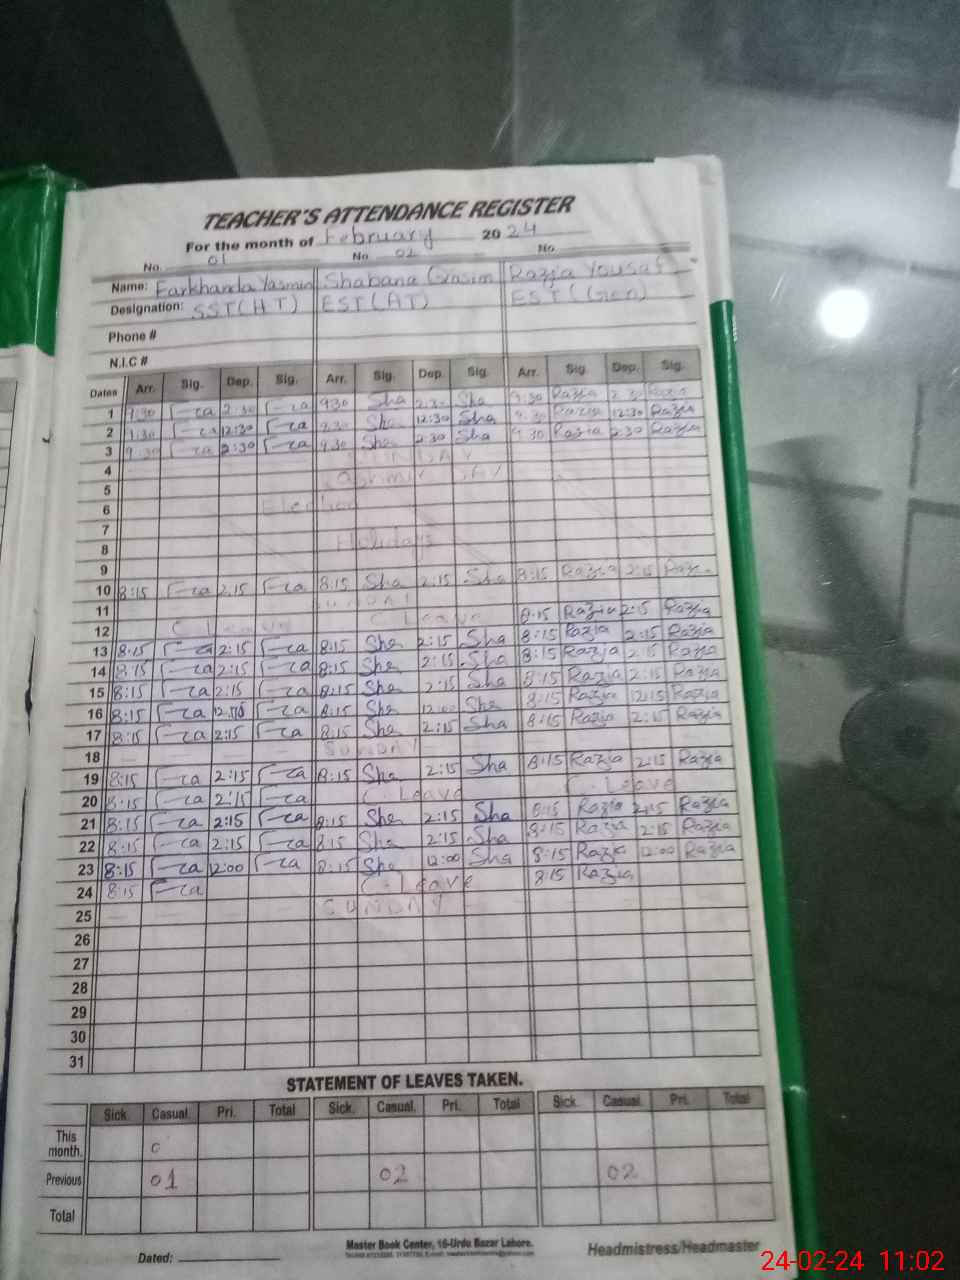 TEACHER'S ATTENDANCE REGISTER
For the month of February 2024
No. 01 No 02 No.
Name: Farkhanda Yasmin Shabana Qasim Razia Yousaf
Designation: SST(HT) EST(AT) EST(Gen)
Phone #
N.I.C #
Dates Arr. Sig. Dep. Sig. Arr. Sig. Dep. Sig. Arr. Sig. Dep. Sig.
1 9:30 2:30 9:30 Sha 2:30 Sha 9:30 Razia 2:30 Razia
2 9:30 12:30 9:30 Sha 12:30 Sha 9:30 Razia 12:30 Razia
3 9:30 2:30 9:30 Sha 2:30 Sha 9:30 Razia 2:30 Razia
4 SUNDAY
5 Kashmir DAY
6 Election
7
8 Holidays
9
10 8:15 2:15 8:15 Sha 2:15 Sha 8:15 Razia 2:15 Razia
11 SUNDAY
12 C Leave C Leave 8:15 Razia 2:15 Razia
13 8:15 2:15 8:15 Sha 2:15 Sha 8:15 Razia 2:15 Razia
14 8:15 2:15 8:15 Sha 2:15 Sha 8:15 Razia 2:15 Razia
15 8:15 2:15 8:15 Sha 2:15 Sha 8:15 Razia 2:15 Razia
16 8:15 8:15 Sha 12:00 Sha 8:15 Razia 12:15 Razia
17 8:15 2:15 8:15 Sha 2:15 Sha 8:15 Razia 2:15 Razia
18 SUNDAY
19 8:15 2:15 8:15 Sha 2:15 Sha 8:15 Razia 2:15 Razia
20 8:15 2:15 C-Leave C-Leave
21 8:15 2:15 8:15 Sha 2:15 Sha 8:15 Razia 2:15 Razia
22 8:15 2:15 8:15 Sha 2:15 Sha 8:15 Razia 2:15 Razia
23 8:15 12:00 8:15 Sha 12:00 Sha 8:15 Razia 12:00 Razia
24 8:15 C-Leave 8:15 Razia
25 SUNDAY
26
27
28
29
30
31
STATEMENT OF LEAVES TAKEN.
Sick. Casual. Pri. Total Sick. Casual. Pri. Total Sick. Casual. Pri. Total
This month.
Previous 01 02 02
Total
Master Book Center, 16-Urdu Bazar Lahore.
Dated: Headmistress/Headmaster
24-02-24 11:02